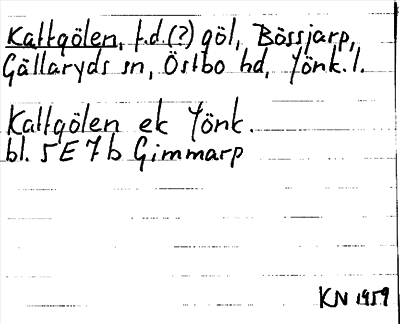 Kattgölen, f.d.(?) göl, Bössjarp,
Gällaryds sn, Östbo hd, Jönk.l.
Kattgölen ek Jönk.
bl. 5E 7b Gimmarp
KN 1959